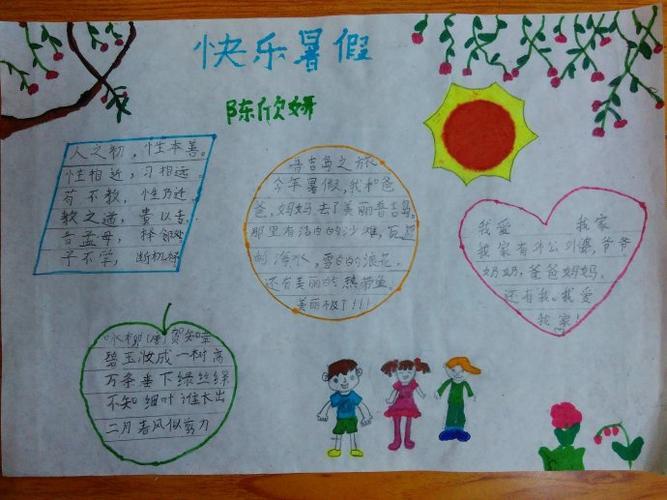 快乐暑假
陈欣妍
人之初,性本善。
性相近,习相远
苟不教,性乃迁
教之道,贵以专
昔孟母,择邻处
子不学,断机杼
普吉岛之旅
今年暑假,我和爸
爸,妈妈去了美丽普吉岛,
那里有洁白的沙滩,瓦蓝
的海水,雪白的浪花,
还有美丽的热带鱼,
美丽极了!!!
我爱 我家
我家有外公外婆,爷爷
奶奶,爸爸妈妈,
还有我。我爱
我家!
咏柳(唐)贺知章
碧玉妆成一树高
万条垂下绿丝绦
不知细叶谁裁出
二月春风似剪刀